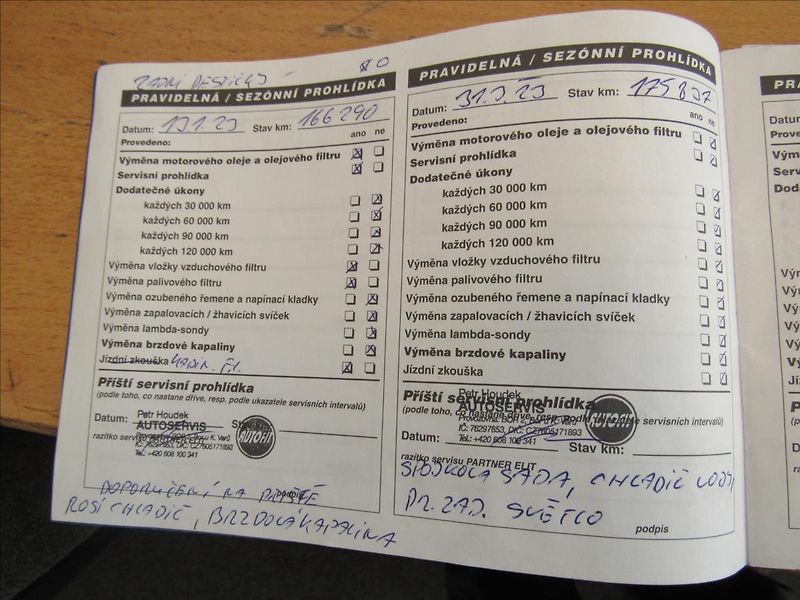 ZADNÍ DESTIČKY
PRAVIDELNÁ / SEZÓNNÍ PROHLÍDKA
Datum: 13.1.23 Stav km: 166290
Provedeno: ano ne
Výměna motorového oleje a olejového filtru
Servisní prohlídka
Dodatečné úkony
každých 30 000 km
každých 60 000 km
každých 90 000 km
každých 120 000 km
Výměna vložky vzduchového filtru
Výměna palivového filtru
Výměna ozubeného řemene a napínací kladky
Výměna zapalovacích / žhavicích svíček
Výměna lambda-sondy
Výměna brzdové kapaliny
Jízdní zkouška
Příští servisní prohlídka
(podle toho, co nastane dříve, resp. podle ukazatele servisních intervalů)
Petr Houdek
Datum: AUTOSERVIS
IČ: 76297853, DIČ: CZ7605171893
Tel.: +420 608 100 341
DOPORUČENÍ NA PŘÍŠTĚ
ROSÍ CHLADIČ, BRZDOVÁ KAPALINA
PRAVIDELNÁ / SEZÓNNÍ PROHLÍDKA
Datum: 31.3.23 Stav km: 175837
Provedeno: ano ne
Výměna motorového oleje a olejového filtru
Servisní prohlídka
Dodatečné úkony
každých 30 000 km
každých 60 000 km
každých 90 000 km
každých 120 000 km
Výměna vložky vzduchového filtru
Výměna palivového filtru
Výměna ozubeného řemene a napínací kladky
Výměna zapalovacích / žhavicích svíček
Výměna lambda-sondy
Výměna brzdové kapaliny
Jízdní zkouška
Příští servisní prohlídka
(podle toho, co nastane dříve, resp. podle ukazatele servisních intervalů)
Petr Houdek
AUTOSERVIS
IČ: 76297853, DIČ: CZ7605171893
Datum: Tel.: +420 608 100 341 Stav km:
razítko servisu PARTNER ELIT
SPOJKOVÁ SADA, CHLADIČ VODY
PR. ZAD. SVĚTLO
podpis